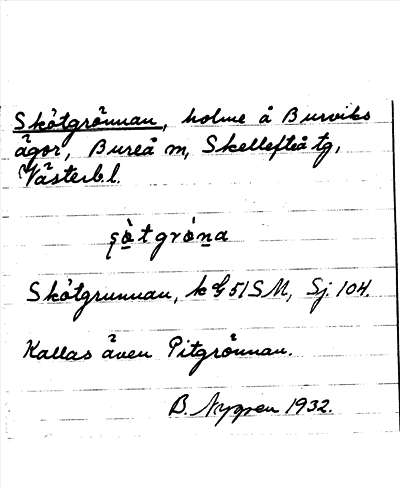 Skötgrönnan, holme å Burviks
ägor, Bureå m, Skellefteå tg,
Västerb.l.
Skötgrunnan, k G 51 SM, Sj. 104.
Kallas även Pitgrönnan.
B. Nygren 1932.